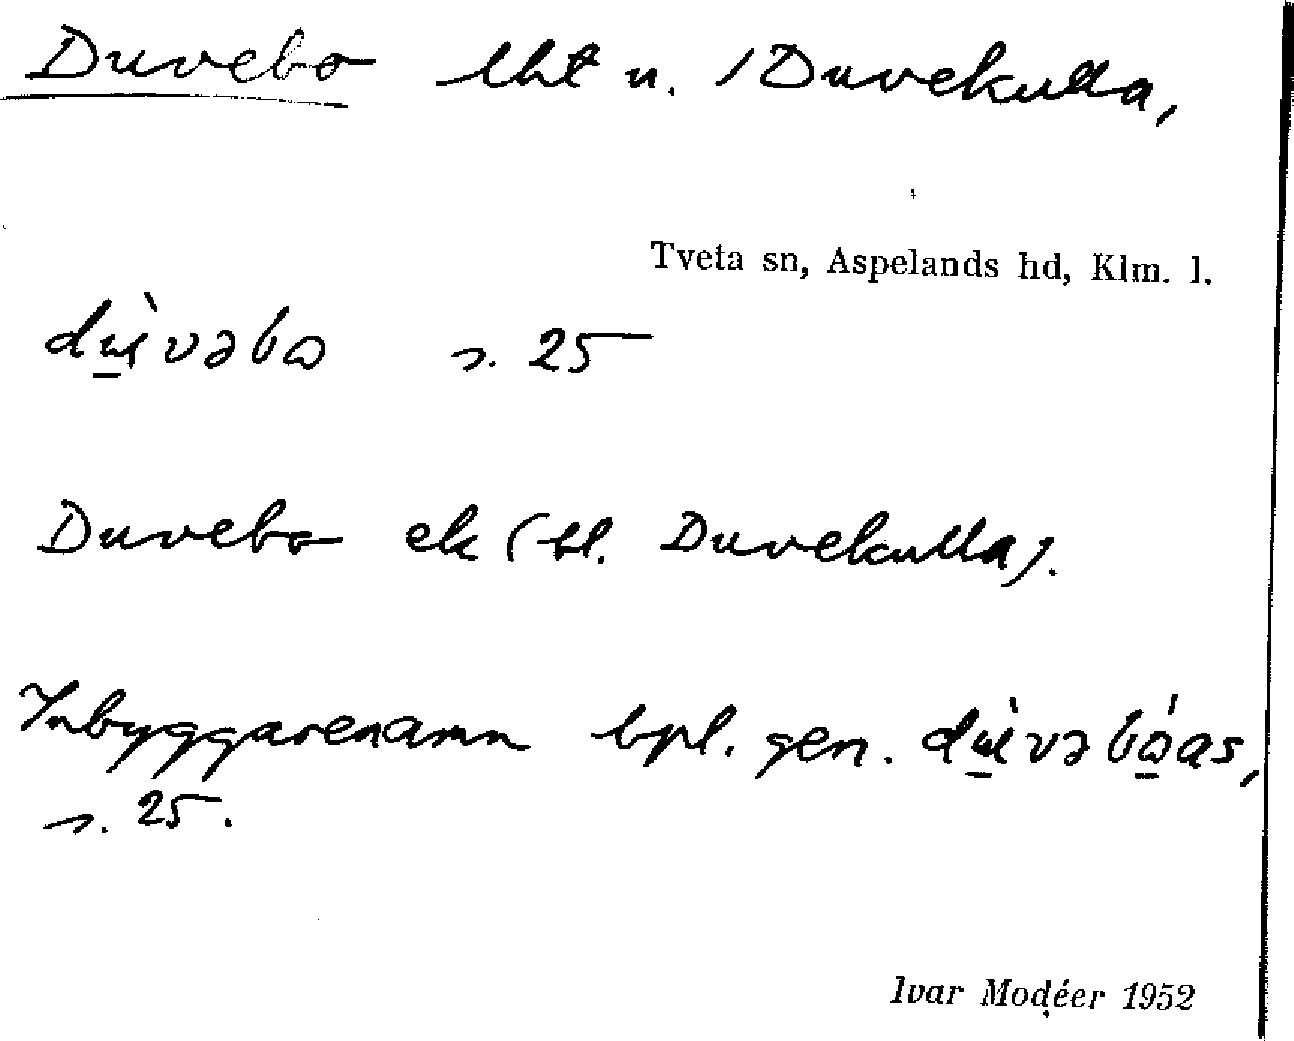 Duvebo lht u. /Duvekulla,
Tveta sn, Aspelands hd, Klm. l.
dɯ̠̀vəbɷ s. 25
Duvebo ek (bl. Duvekulla).
Inbyggarenamn bpl. gen. dɯ̠̀vəbɷ̠́as,
s. 25.
Ivar Modéer 1952